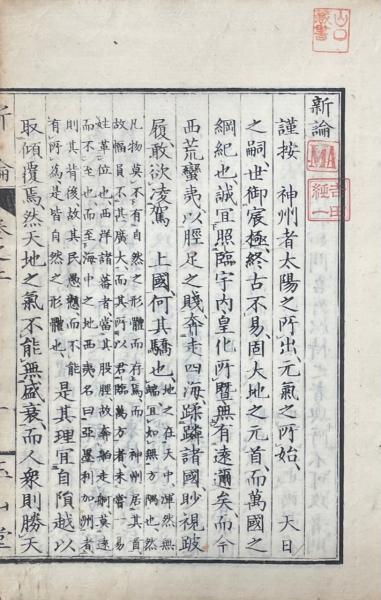 新論
謹按神州者太陽之所出元氣之所始天日
之嗣世御宸極終古不易固大地之元首而萬國之
綱紀也誠宜照臨宇內皇化所曁無有遠邇矣而今
西荒蠻夷以脛足之賤奔走四海蹂躪諸國眇視跛
履敢欲凌駕上國何其驕也
地之在天中渾然無
端宜如無方隅也然
凡物莫不有自然之形體而存焉而神州居其首
故幅員不甚廣大而其所以君臨萬方者未嘗一易
姓革位也西洋諸蕃者當其股脛故奔舶走舸莫遠
而不至也而至海中之地西夷名曰亞墨利加洲者
則其背後故其民愚戇而不能
有所爲是皆自然之形體也
是其理宜自隕越以
取傾覆焉然天地之氣不能無盛衰而人衆則勝天
新論
卷之上
玉山堂
山口
藏書
MA